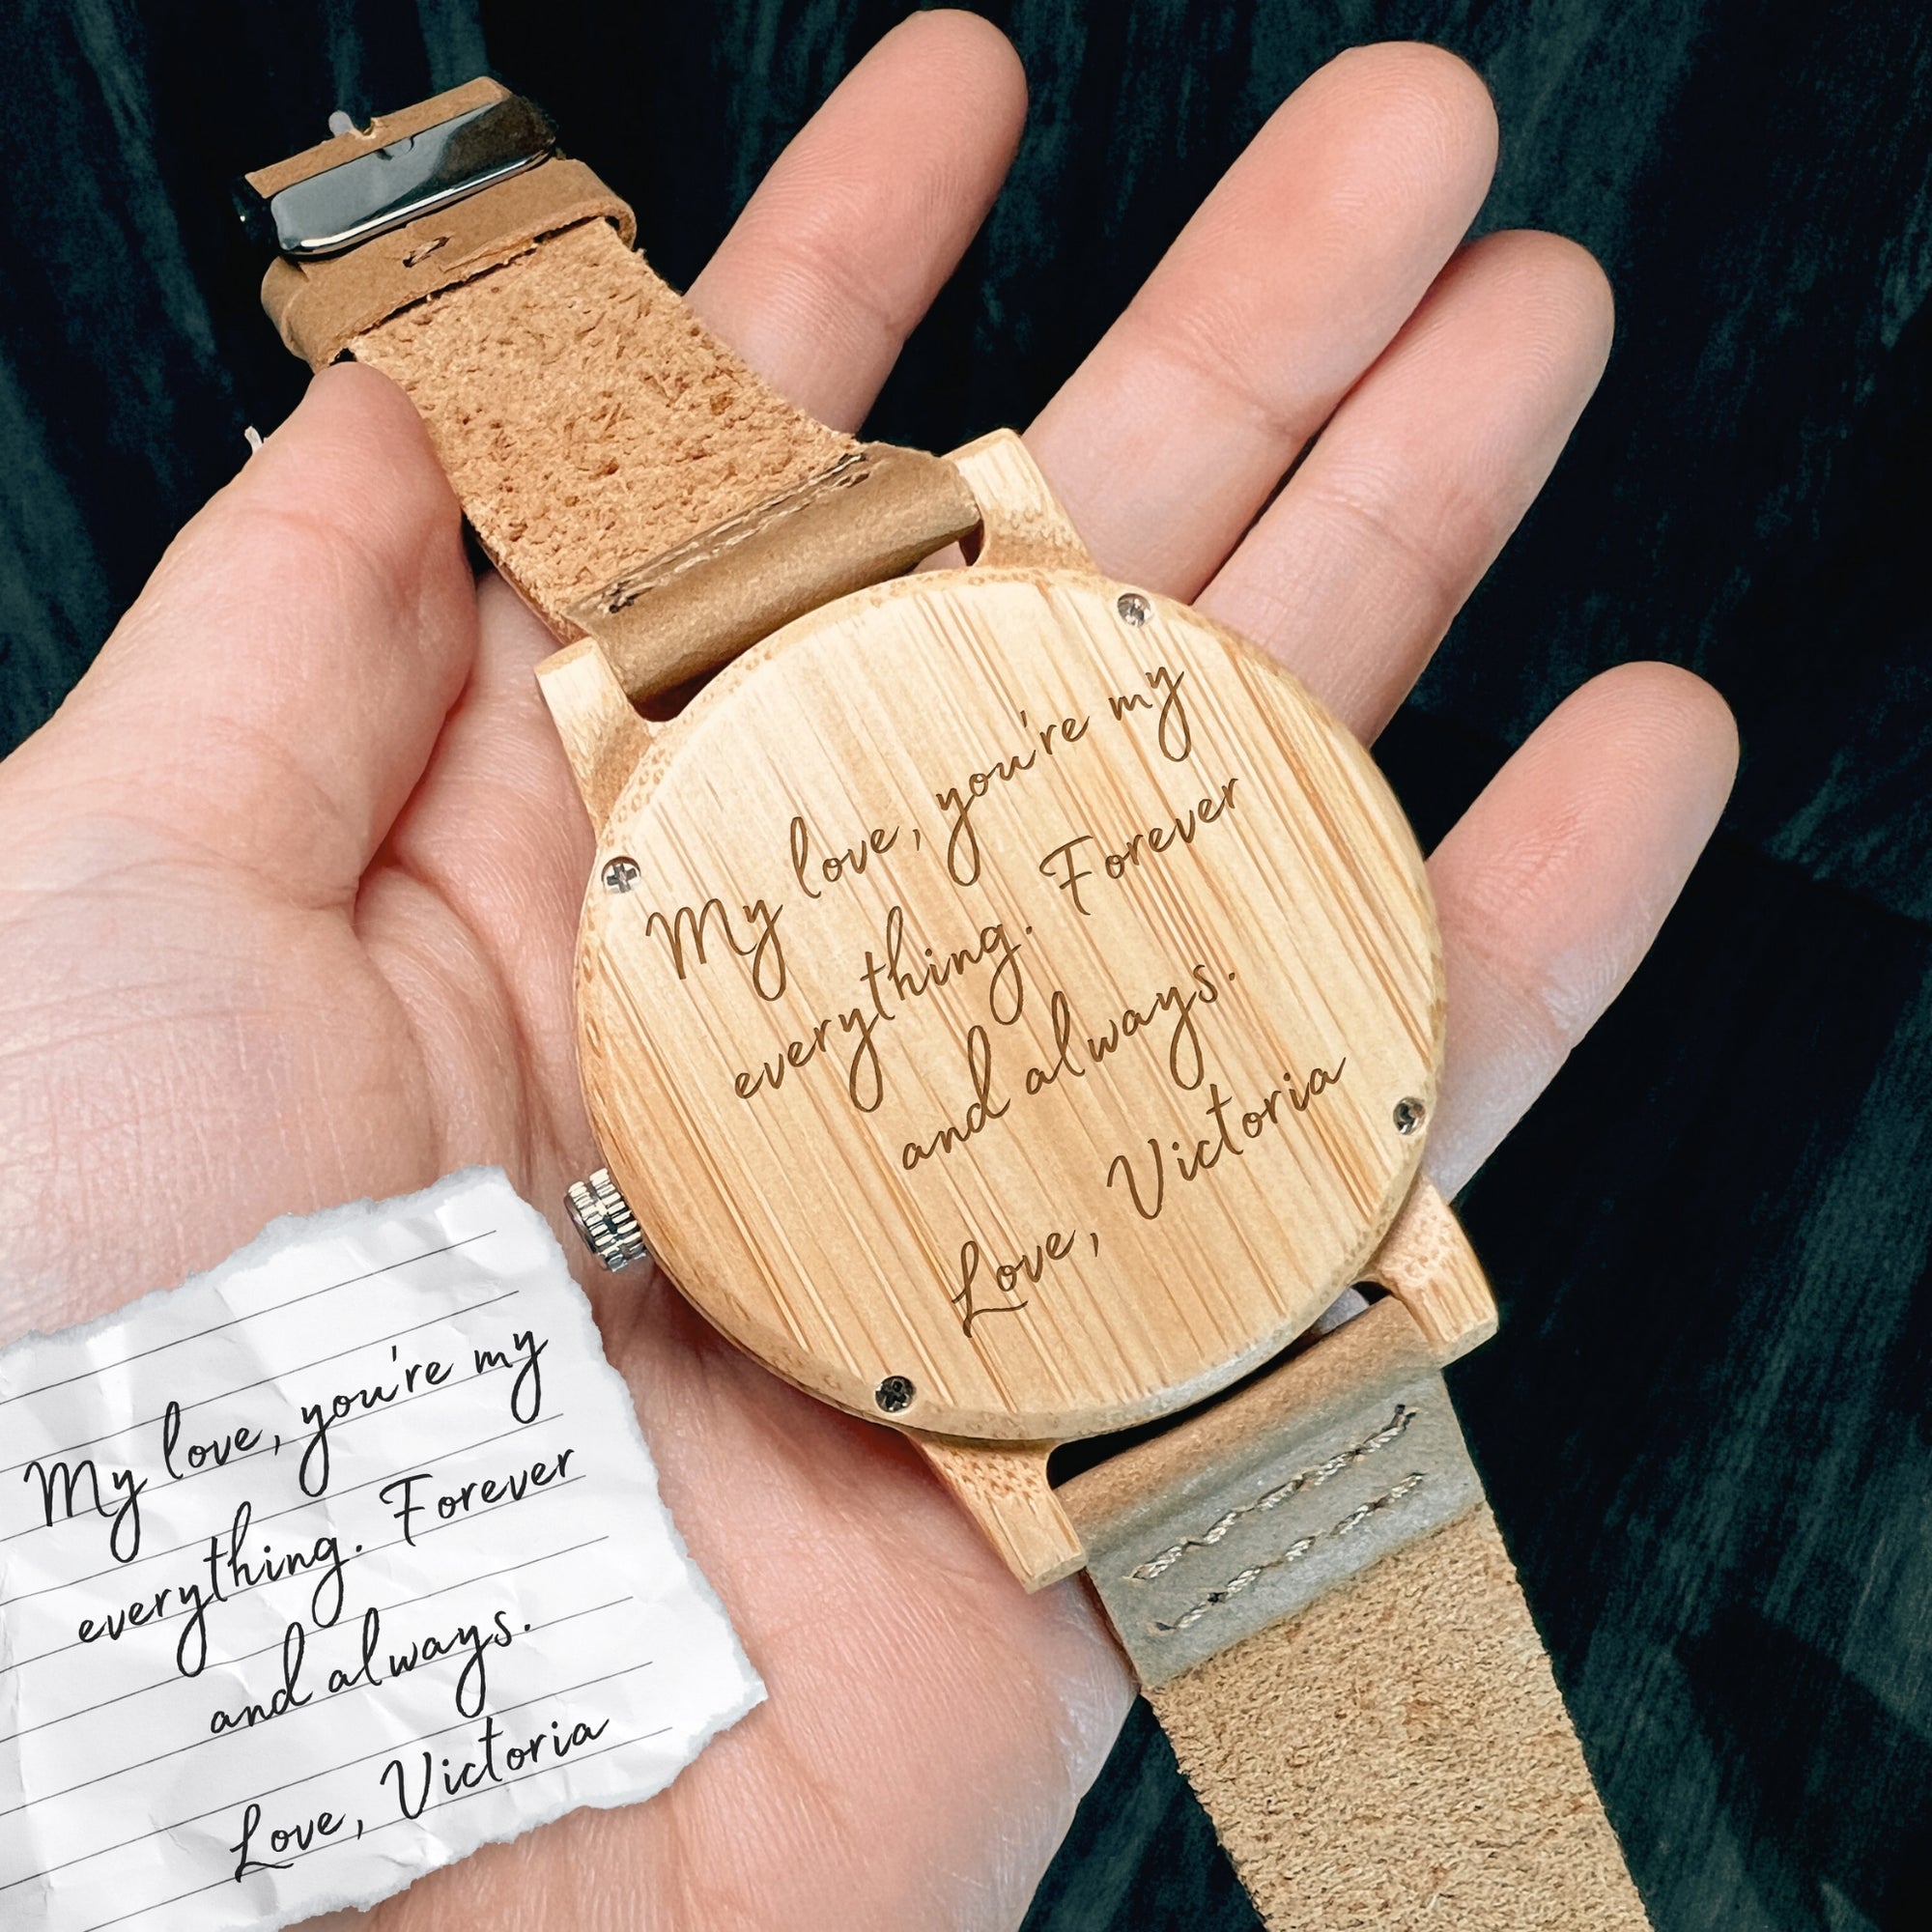 My love, you're my
everything. Forever
and always.
Love, Victoria
My love, you're my
everything. Forever
and always.
Love, Victoria